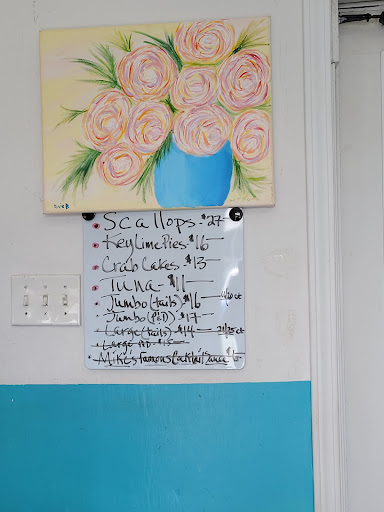 Scallops - $27
Key Lime Pies - $16
Crab Cakes - $13
Tuna - $11
Jumbo (tails) $16
Jumbo (P&D) - $17
Large (tails) - $14 21/25 ct
Large P&D - $15
Mike's Famous Cocktail Sauce